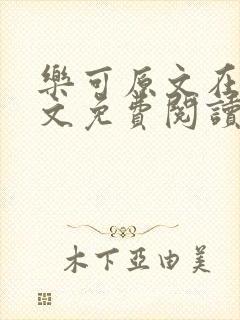 樂可原文在
文免費閱讀
木下亞由美